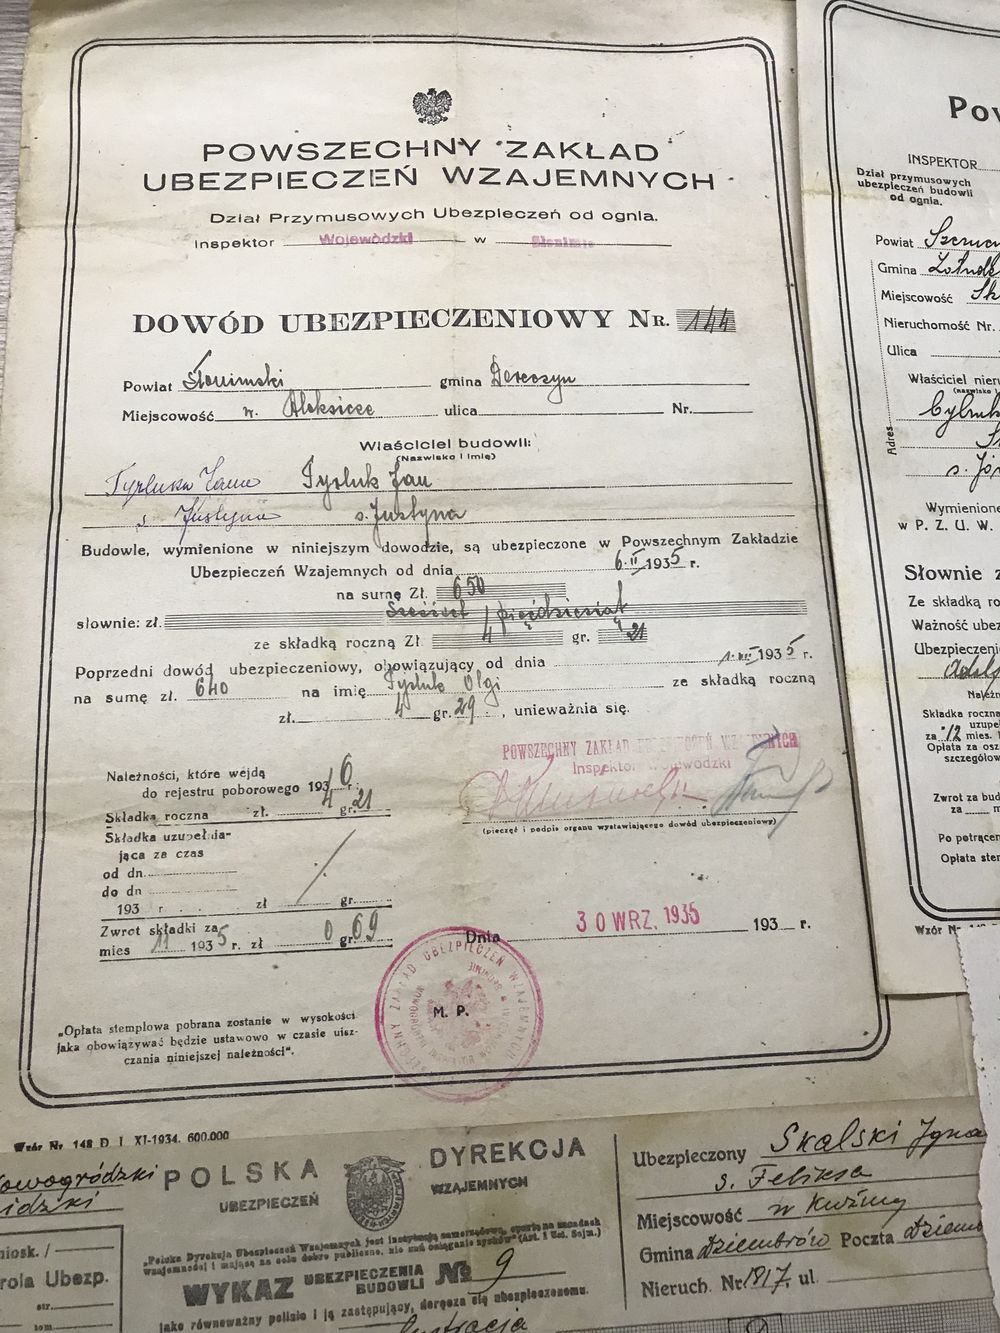 POWSZECHNY ZAKŁAD
UBEZPIECZEŃ WZAJEMNYCH
Dział Przymusowych Ubezpieczeń od ognia.
Inspektor Wojewódzki w Słonimie
DOWÓD UBEZPIECZENIOWY NR. 144
Powiat Słonimski gmina Dereczyn
Miejscowość w. Aleksicze ulica Nr.
Właściciel budowli:
(Nazwisko i imię)
Tyrluk Jan
s. Justyna s. Justyna
Budowle, wymienione w niniejszym dowodzie, są ubezpieczone w Powszechnym Zakładzie
Ubezpieczeń Wzajemnych od dnia 6.II 1935 r.
na sumę Zł. 650
słownie: zł. Sześćset pięćdziesiąt
ze składką roczną Zł. 4 gr. 21
Poprzedni dowód ubezpieczeniowy, obowiązujący od dnia 1935 r.
na sumę zł. 640 na imię Tyrluk Olgi ze składką roczną
zł. 4 gr. 29, unieważnia się.
Należności, które wejdą
do rejestru poborowego 1936 r.
Składka roczna zł. 4 gr. 21
Składka uzupełnia-
jąca za czas
od dn.
do dn
193 r. zł gr.
Zwrot składki za
mies 11 1935 r. zł 0 gr. 69
POWSZECHNY ZAKŁAD UBEZPIECZEŃ WZAJEMNYCH
Inspektor Wojewódzki
(pieczęć i podpis organu wystawiającego dowód ubezpieczeniowy)
Dnia 30 WRZ. 1935 193 r.
M. P.
„Opłata stemplowa pobrana zostanie w wysokości
jaka obowiązywać będzie ustawowo w czasie uisz-
czania niniejszej należności".
Wzór Nr 148 D I XI-1934. 600.000
Pow
INSPEKTOR
Dział przymusowych
ubezpieczeń budowli
od ognia.
Powiat
Gmina
Miejscowość
Nieruchomość Nr.
Ulica
Właściciel
Adres
s.
Wymienione
w P. Z. U. W.
Słownie z
Ze składką ro
Ważność ubez
Ubezpieczeni
Składka roczna
uzupe
za 12 mies.
Opłata za
szczegółow
Zwrot za bud
za m
Po potrącen
Opłata ste
Wzór N
owogródzki
idzki
niosk. /
rola Ubezp.
str.
tom
POLSKA DYREKCJA
UBEZPIECZEŃ WZAJEMNYCH
„Polska Dyrekcja Ubezpieczeń Wzajemnych jest instytucją samorządową, opartą na zasadach
wzajemności i mającą za celu dobro publiczne, nie zaś osiąganie zysków" (Art. 1 Ust. Sejm.)
WYKAZ UBEZPIECZENIA BUDOWLI № 9
jako równoważny polisie i ją zastępujący, doręcza się ubezpieczonemu.
Ubezpieczony Skalski Igna
s. Feliksa
Miejscowość w Kuźmy
Gmina Dziembrów Poczta Dziemb
Nieruch. Nr 1817, ul.